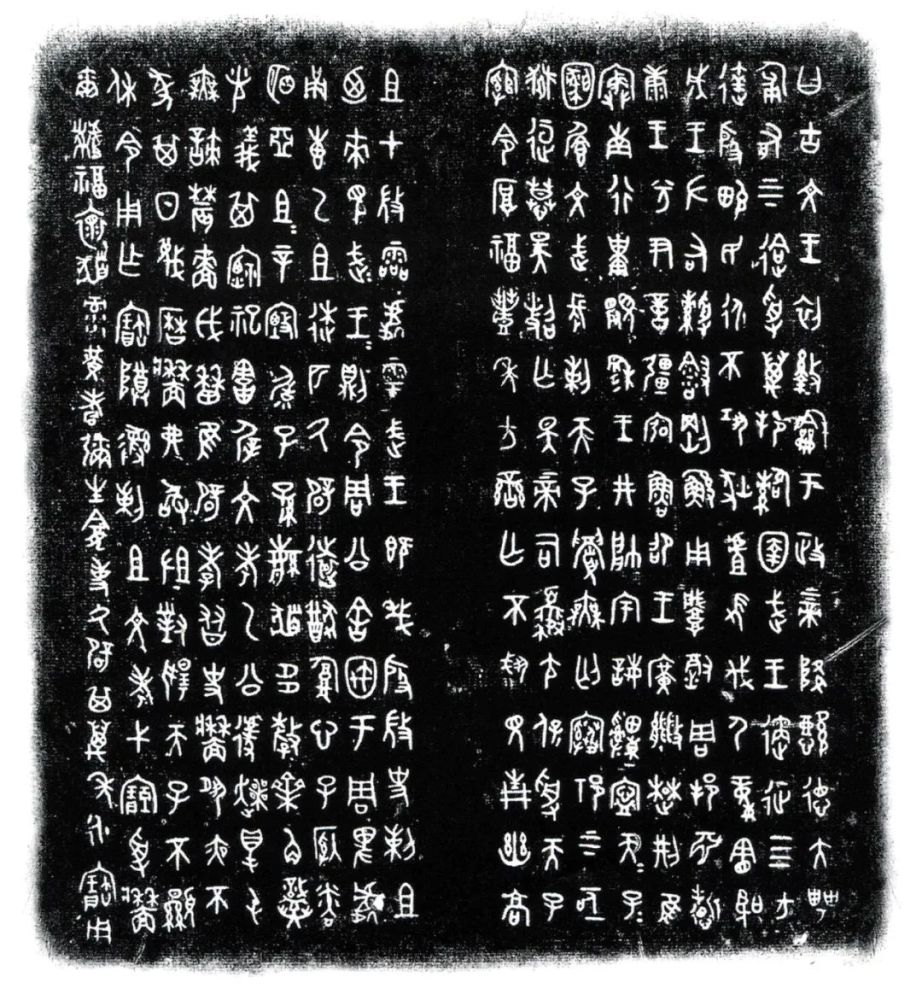 曰古文王初盭龢于政上帝降懿德大甹
匍有上下迨受萬邦圉武王遹征四方
達殷畯民永不巩狄虘伐尸童憲聖
成王左右剛鯀用肇徹周邦淵哲
康王兮尹億彊宖魯卲王廣楚荊隹
南行祗景穆王井帥宇誨寧天子天子
文武長剌天子眉無匄祁上下亟
慕昊照亡斁上帝司夒尢保受天子
綰令厚福豐年方蠻亡不見青幽高
且才微霝處雩武王既殷微史剌且
迺來見武王武王則令周公舍宇于周卑處
甬叀乙且匹厥辟遠猷腹心子
明亞且且辛毓子孫繁多釐齊角光
義其禋祀屖文考乙公遽爽得屯
無諫農嗇戉曆隹辟孝友史牆夙夜不
墜其日蔑曆牆弗敢沮對揚天子不顯
休令用乍寶尊彝剌且文考弋受牆
爾福懷录黃耇彌生龕事厥辟其萬年永寶用